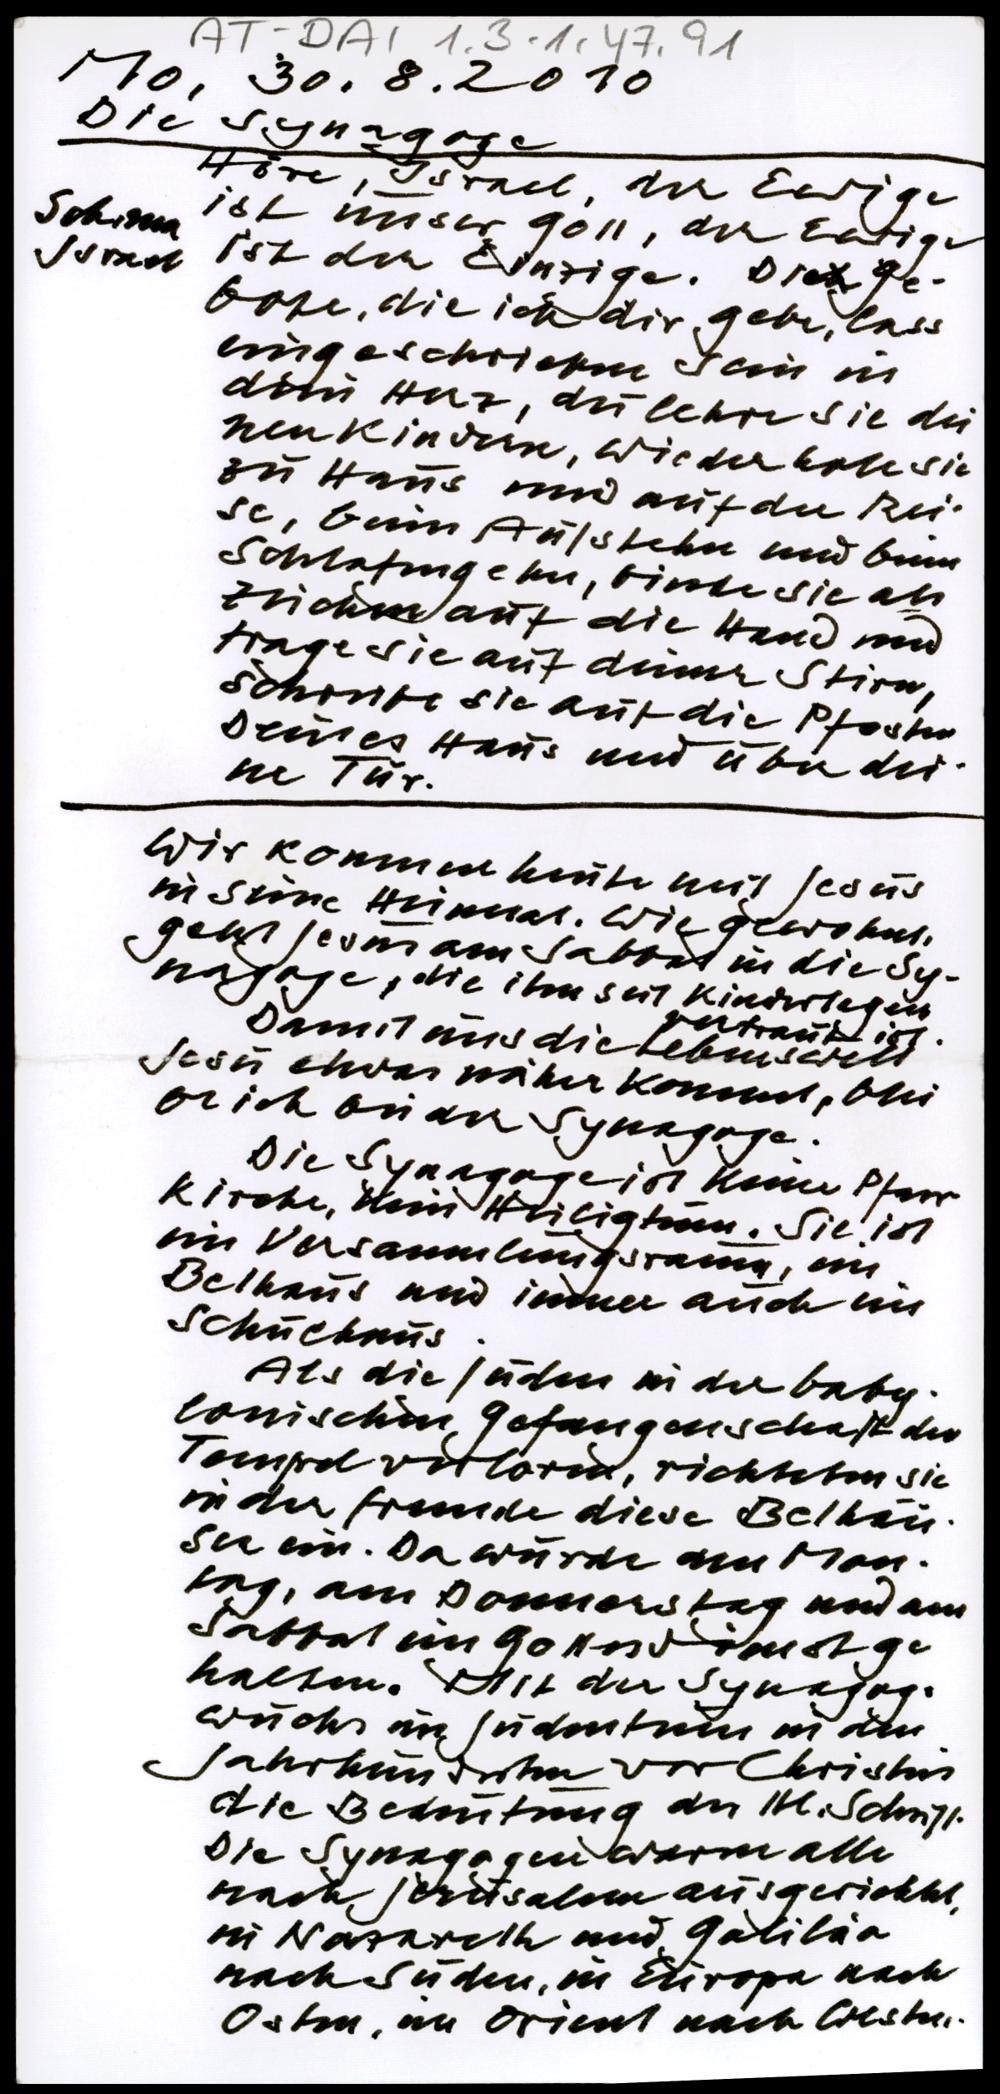 AT-DAI 1.3.1.47.91
Mo, 30.8.2010
Die Synagoge
Höre, Israel, der Ewige
Schma
Israel
ist unser Gott, der Ewige
ist der Einzige. Diese Ge-
bote, die ich dir gebe, lass
eingeschrieben sein in
dein Herz, du lehre sie dei
nen Kindern, wiederhole sie
zu Haus und auf der Rei-
se, beim Aufstehn und beim
Schlafengehn, binde sie als
Zeichen auf die Hand und
trage sie auf deiner Stirn,
schreibe sie auf die Pfosten
Deines Haus und über dei-
ne Tür.
Wir kommen heute mit Jesus
in seine Heimat. Wie gewohnt,
geht Jesus am Sabbat in die Sy-
nagoge, die ihm seit Kindertagen
vertraut ist.
Damit uns die Lebenswelt
Jesu etwas näher kommt, blei
be ich bei der Synagoge.
Die Synagoge ist keine Pfarr
kirche, kein Heiligtum. Sie ist
ein Versammlungsraum, ein
Bethaus und immer auch ein
Schulhaus.
Als die Juden in der baby-
lonischen Gefangenschaft den
Tempel verloren, richteten sie
in der Fremde diese Bethäu-
ser ein. Da wurde am Mon-
tag, am Donnerstag und am
Sabbat ein Gottesdienst ge
halten. Mit der Synagog.
wuchs im Judentum in den
Jahrhunderten vor Christus
die Bedeutung der Hl. Schrift.
Die Synagogen waren alle
nach Jerusalem ausgerichtet,
in Nazareth und Galiläa
nach Süden, in Europa nach
Osten, im Orient nach Westen.